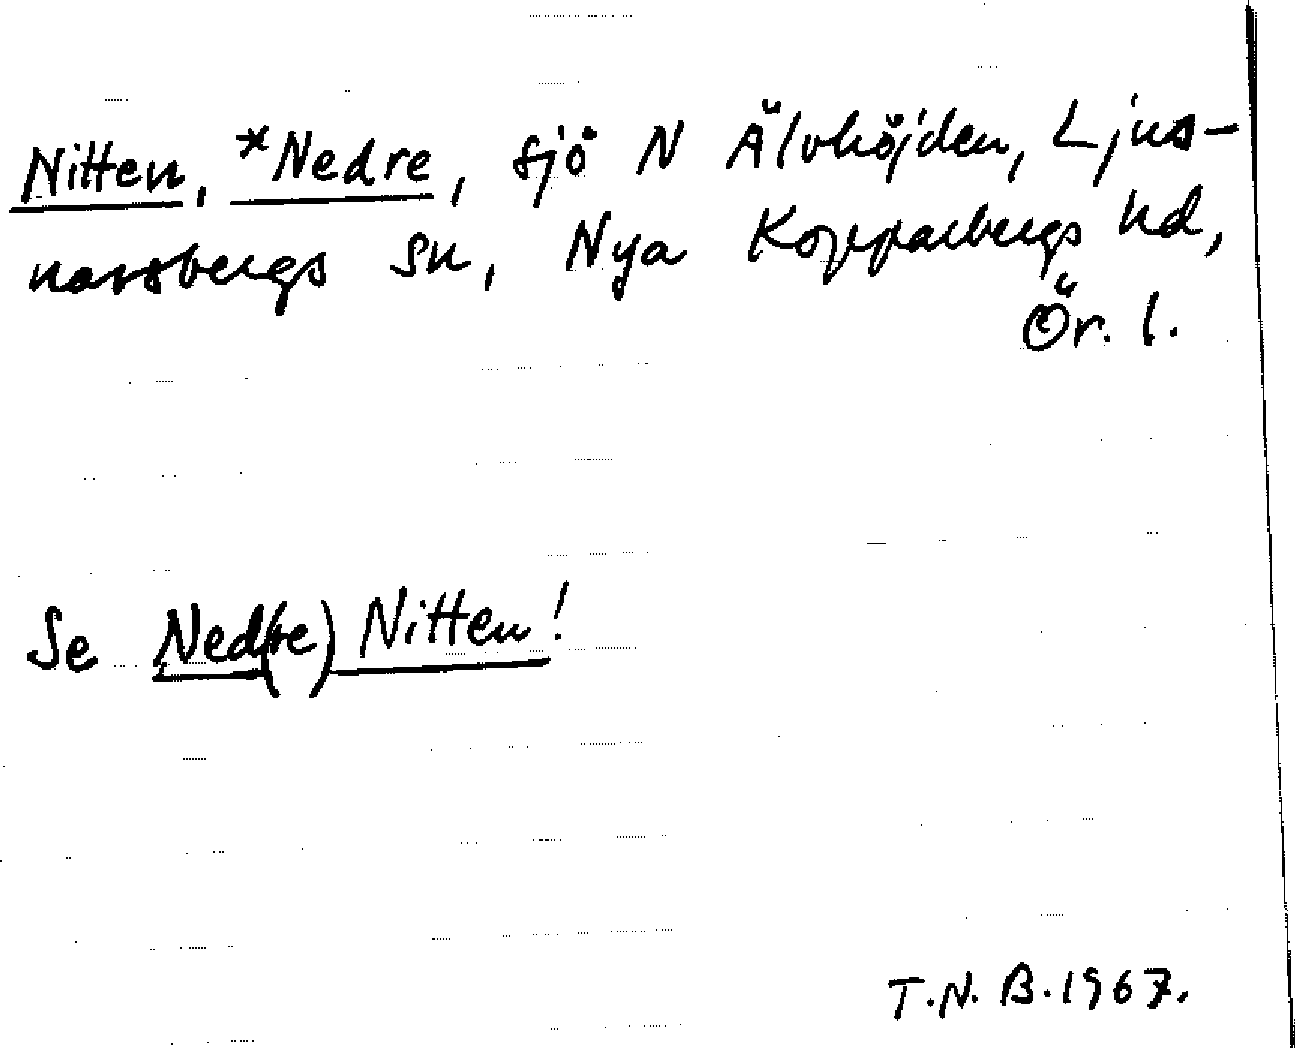 Nitten, *Nedre, sjö N Älvhöjden, Ljus-
narsbergs sn, Nya Kopparbergs hd,
Ör. l.
Se Ned(re) Nitten!
T.N.B. 1967.